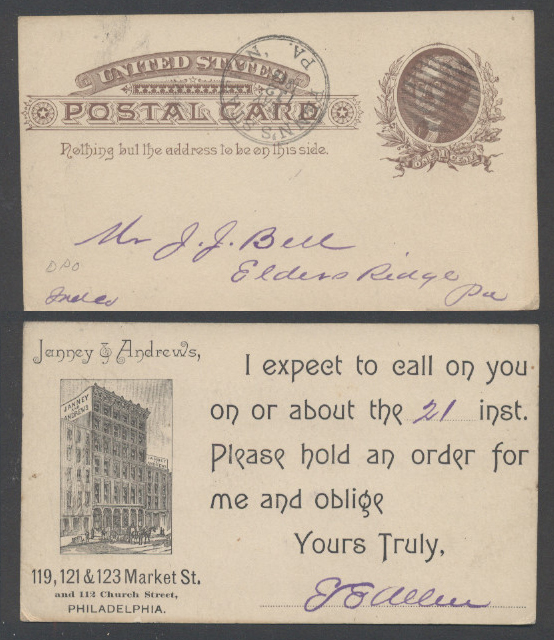 UNITED STATES
POSTAL CARD
Nothing but the address to be on this side.
PA.
ONE CENT
Mr J. J. Bell
Elders Ridge
Pa
DPO
Janney & Andrews,
JANNEY
ANDREWS
119, 121 & 123 Market St.
and 112 Church Street,
PHILADELPHIA.
I expect to call on you
on or about the 21 inst.
Please hold an order for
me and oblige
Yours Truly,